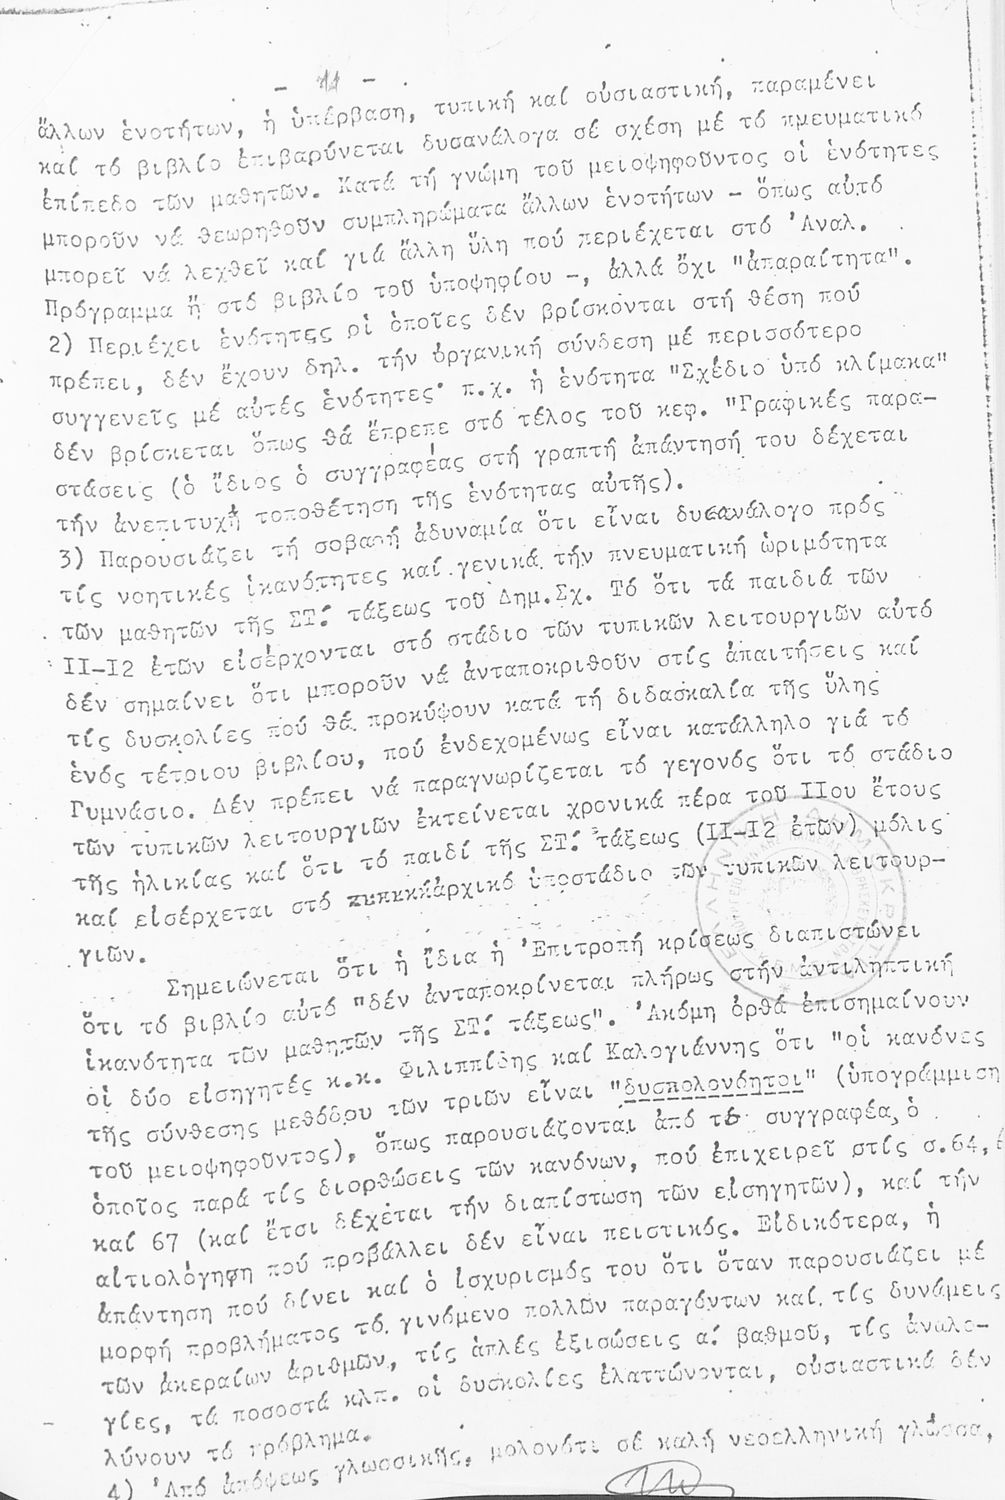 - 11 -
ἄλλων ἑνοτήτων, ἡ ὑπέρβαση, τυπική καί οὐσιαστική, παραμένει
καί τό βιβλίο ἐπιβαρύνεται δυσανάλογα σέ σχέση μέ τό πμευματικό
ἐπίπεδο τῶν μαθητῶν. Κατά τή γνώμη τοῦ μειοψηφοῦντος οἱ ἑνότητες
μποροῦν νά θεωρηθοῦν συμπληρώματα ἄλλων ἑνοτήτων - ὅπως αὐτό
μπορεῖ νά λεχθεῖ καί γιά ἄλλη ὕλη πού περιέχεται στό 'Αναλ.
Πρόγραμμα ἤ στό βιβλίο τοῦ ὑποψηφίου -, ἀλλά ὄχι "ἀπαραίτητα".
2) Περιέχει ἑνότητες οἱ ὁποῖες δέν βρίσκονται στή θέση πού
πρέπει, δέν ἔχουν δηλ. τήν ὀργανική σύνδεση μέ περισσότερο
συγγενεῖς μέ αὐτές ἑνότητες· π.χ. ἡ ἑνότητα "Σχέδιο ὑπό κλίμακα"
δέν βρίσκεται ὅπως θά ἔπρεπε στό τέλος τοῦ κεφ. "Γραφικές παρα-
στάσεις (ὁ ἴδιος ὁ συγγραφέας στή γραπτή ἀπάντησή του δέχεται
τήν ἀνεπιτυχῆ τοποθέτηση τῆς ἑνότητας αὐτῆς).
3) Παρουσιάζει τή σοβαρή ἀδυναμία ὅτι εἶναι δυσανάλογο πρός
τίς νοητικές ἱκανότητες καί γενικά τήν πνευματική ὡριμότητα
τῶν μαθητῶν τῆς ΣΤ΄ τάξεως τοῦ Δημ.Σχ. Τό ὅτι τά παιδιά τῶν
ΙΙ-Ι2 ἐτῶν εἰσέρχονται στό στάδιο τῶν τυπικῶν λειτουργιῶν αὐτό
δέν σημαίνει ὅτι μποροῦν νά ἀνταποκριθοῦν στίς ἀπαιτήσεις καί
τίς δυσκολίες πού θά προκύψουν κατά τή διδασκαλία τῆς ὕλης
ἑνός τέτοιου βιβλίου, πού ἐνδεχομένως εἶναι κατάλληλο γιά τό
Γυμνάσιο. Δέν πρέπει νά παραγνωρίζεται τό γεγονός ὅτι τό στάδιο
τῶν τυπικῶν λειτουργιῶν ἐκτείνεται χρονικά πέρα τοῦ ΙΙου ἔτους
τῆς ἡλικίας καί ὅτι τό παιδί τῆς ΣΤ΄ τάξεως (ΙΙ-Ι2 ἐτῶν) μόλις
καί εἰσέρχεται στό ἀρχικό ὑποστάδιο τῶν τυπικῶν λειτουρ-
γιῶν.
Σημειώνεται ὅτι ἡ ἴδια ἡ 'Επιτροπή κρίσεως διαπιστώνει
ὅτι τό βιβλίο αὐτό "δέν ἀνταποκρίνεται πλήρως στήν ἀντιληπτική
ἱκανότητα τῶν μαθητῶν τῆς ΣΤ΄ τάξεως". 'Ακόμη ὀρθά ἐπισημαίνουν
οἱ δύο εἰσηγητές κ.κ. Φιλιππίδης καί Καλογιάννης ὅτι "οἱ κανόνες
τῆς σύνθεσης μεθόδου τῶν τριῶν εἶναι "δυσκολονόητοι" (ὑπογράμμιση
τοῦ μειοψηφοῦντος), ὅπως παρουσιάζονται ἀπό τό συγγραφέα, ὁ
ὁποῖος παρά τίς διορθώσεις τῶν κανόνων, πού ἐπιχειρεῖ στίς σ.64,
καί 67 (καί ἔτσι δέχεται τήν διαπίστωση τῶν εἰσηγητῶν), καί τήν
αἰτιολόγηση πού προβάλλει δέν εἶναι πειστικός. Εἰδικότερα, ἡ
ἀπάντηση πού δίνει καί ὁ ἰσχυρισμός του ὅτι ὅταν παρουσιάζει μέ
μορφή προβλήματος τό γινόμενο πολλῶν παραγόντων καί τίς δυνάμεις
τῶν ἀκεραίων ἀριθμῶν, τίς ἁπλές ἐξισώσεις α΄ βαθμοῦ, τίς ἀναλο-
γίες, τά ποσοστά κλπ. οἱ δυσκολίες ἐλαττώνονται, οὐσιαστικά δέν
λύνουν τό πρόβλημα.
4) 'Από ἀπόψεως γλωσσικῆς, μολονότι σέ καλή νεοελληνική γλῶσσα,